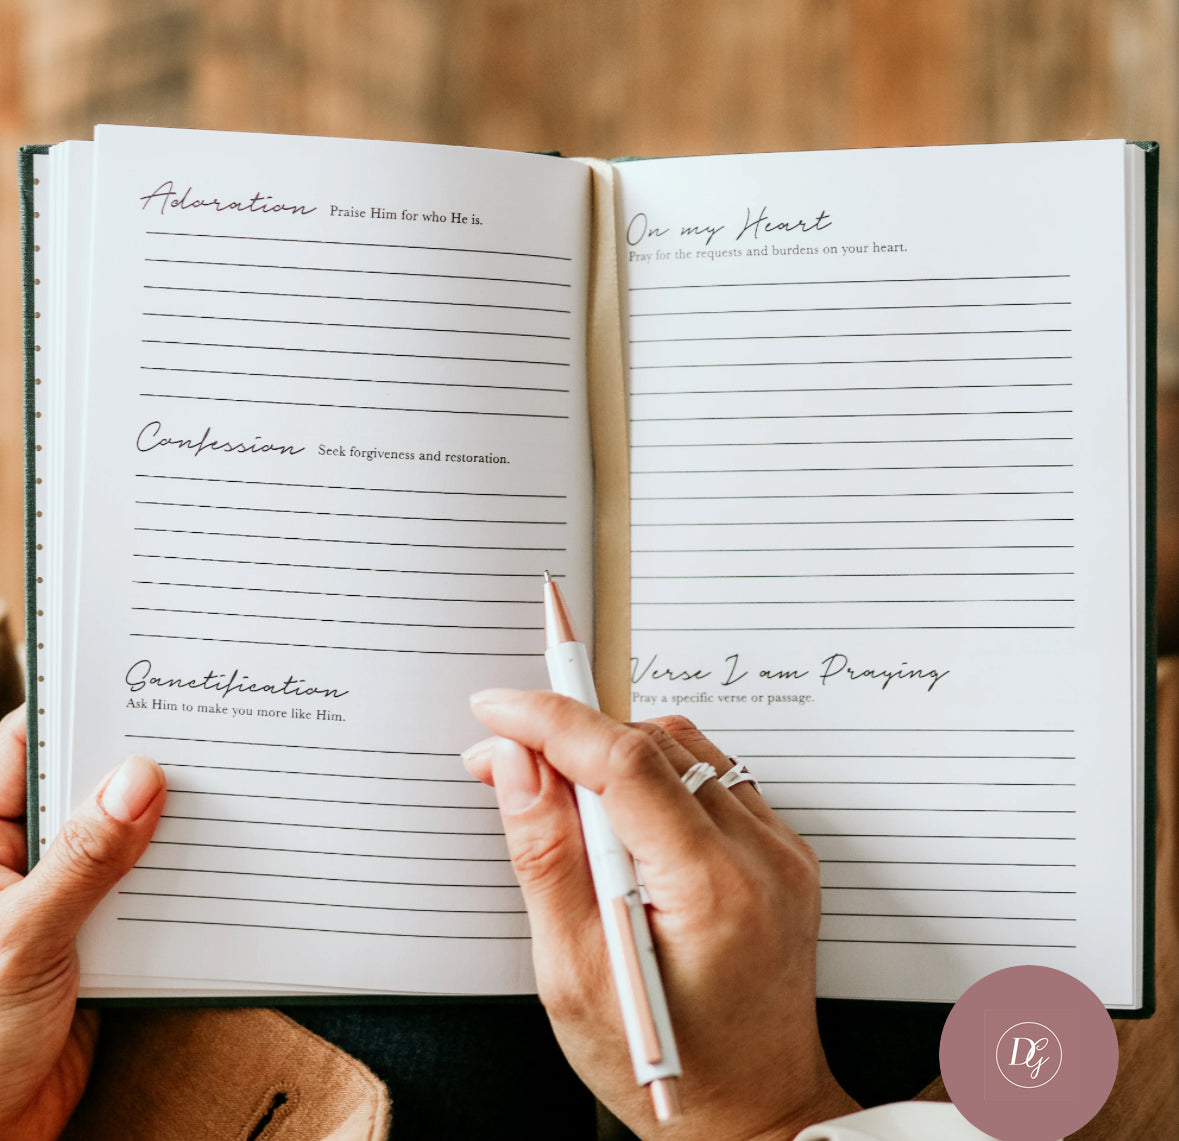 Adoration Praise Him for who He is.
Confession Seek forgiveness and restoration.
Sanctification
Ask Him to make you more like Him.
On my Heart
Pray for the requests and burdens on your heart.
Verse I am Praying
Pray a specific verse or passage.
DG